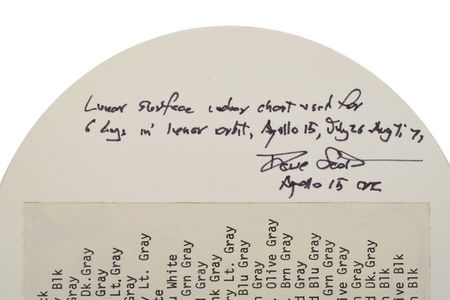 Lunar surface color chart used for
6 days in lunar orbit, Apollo 15, July 26 Aug 7,
Dave Scott
Apollo 15 CDR
Blk
Gray
Dk.Gray
Lt.Gray
Lt. Gray
White
Gray
Gray
Lt. Gray
Blu Gray
Olive Gray
Brn Gray
Gray
Blu Gray
Gray
Gray
Gray
Dk.Gray
Blk
Blk
Blk